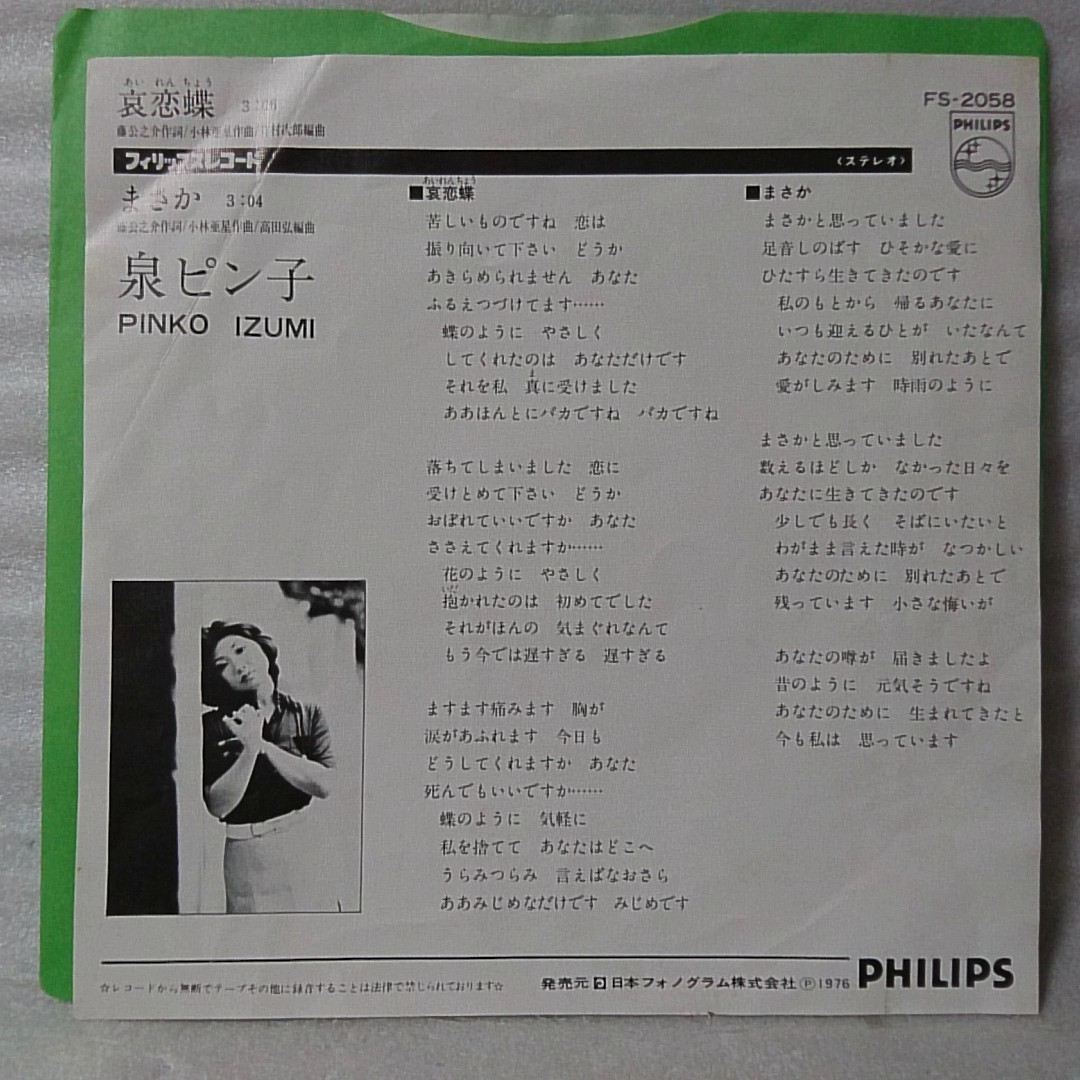 あい れん ちょう
哀恋蝶 3:06
藤公之介作詞/小林亜星作曲/竹村次郎編曲
フィリップスレコード 〈ステレオ〉
まさか 3:04
藤公之介作詞/小林亜星作曲/高田弘編曲
泉ピン子
PINKO IZUMI
FS-2058
PHILIPS
あいれんちょう
■哀恋蝶
苦しいものですね 恋は
振り向いて下さい どうか
あきらめられません あなた
ふるえつづけてます……
蝶のように やさしく
してくれたのは あなただけです
ま
それを私 真に受けました
ああほんとにバカですね バカですね
落ちてしまいました 恋に
受けとめて下さい どうか
おぼれていいですか あなた
ささえてくれますか……
花のように やさしく
いだ
抱かれたのは 初めてでした
それがほんの 気まぐれなんて
もう今では遅すぎる 遅すぎる
ますます痛みます 胸が
涙があふれます 今日も
どうしてくれますか あなた
死んでもいいですか……
蝶のように 気軽に
私を捨てて あなたはどこへ
うらみつらみ 言えばなおさら
ああみじめなだけです みじめです
■まさか
まさかと思っていました
足音しのばす ひそかな愛に
ひたすら生きてきたのです
私のもとから 帰るあなたに
いつも迎えるひとが いたなんて
あなたのために 別れたあとで
愛がしみます 時雨のように
まさかと思っていました
数えるほどしか なかった日々を
あなたに生きてきたのです
少しでも長く そばにいたいと
わがまま言えた時が なつかしい
あなたのために 別れたあとで
残っています 小さな悔いが
あなたの噂が 届きましたよ
昔のように 元気そうですね
あなたのために 生まれてきたと
今も私は 思っています
☆レコードから無断でテープその他に録音することは法律で禁じられております☆
発売元 日本フォノグラム株式会社 Ⓟ1976 PHILIPS